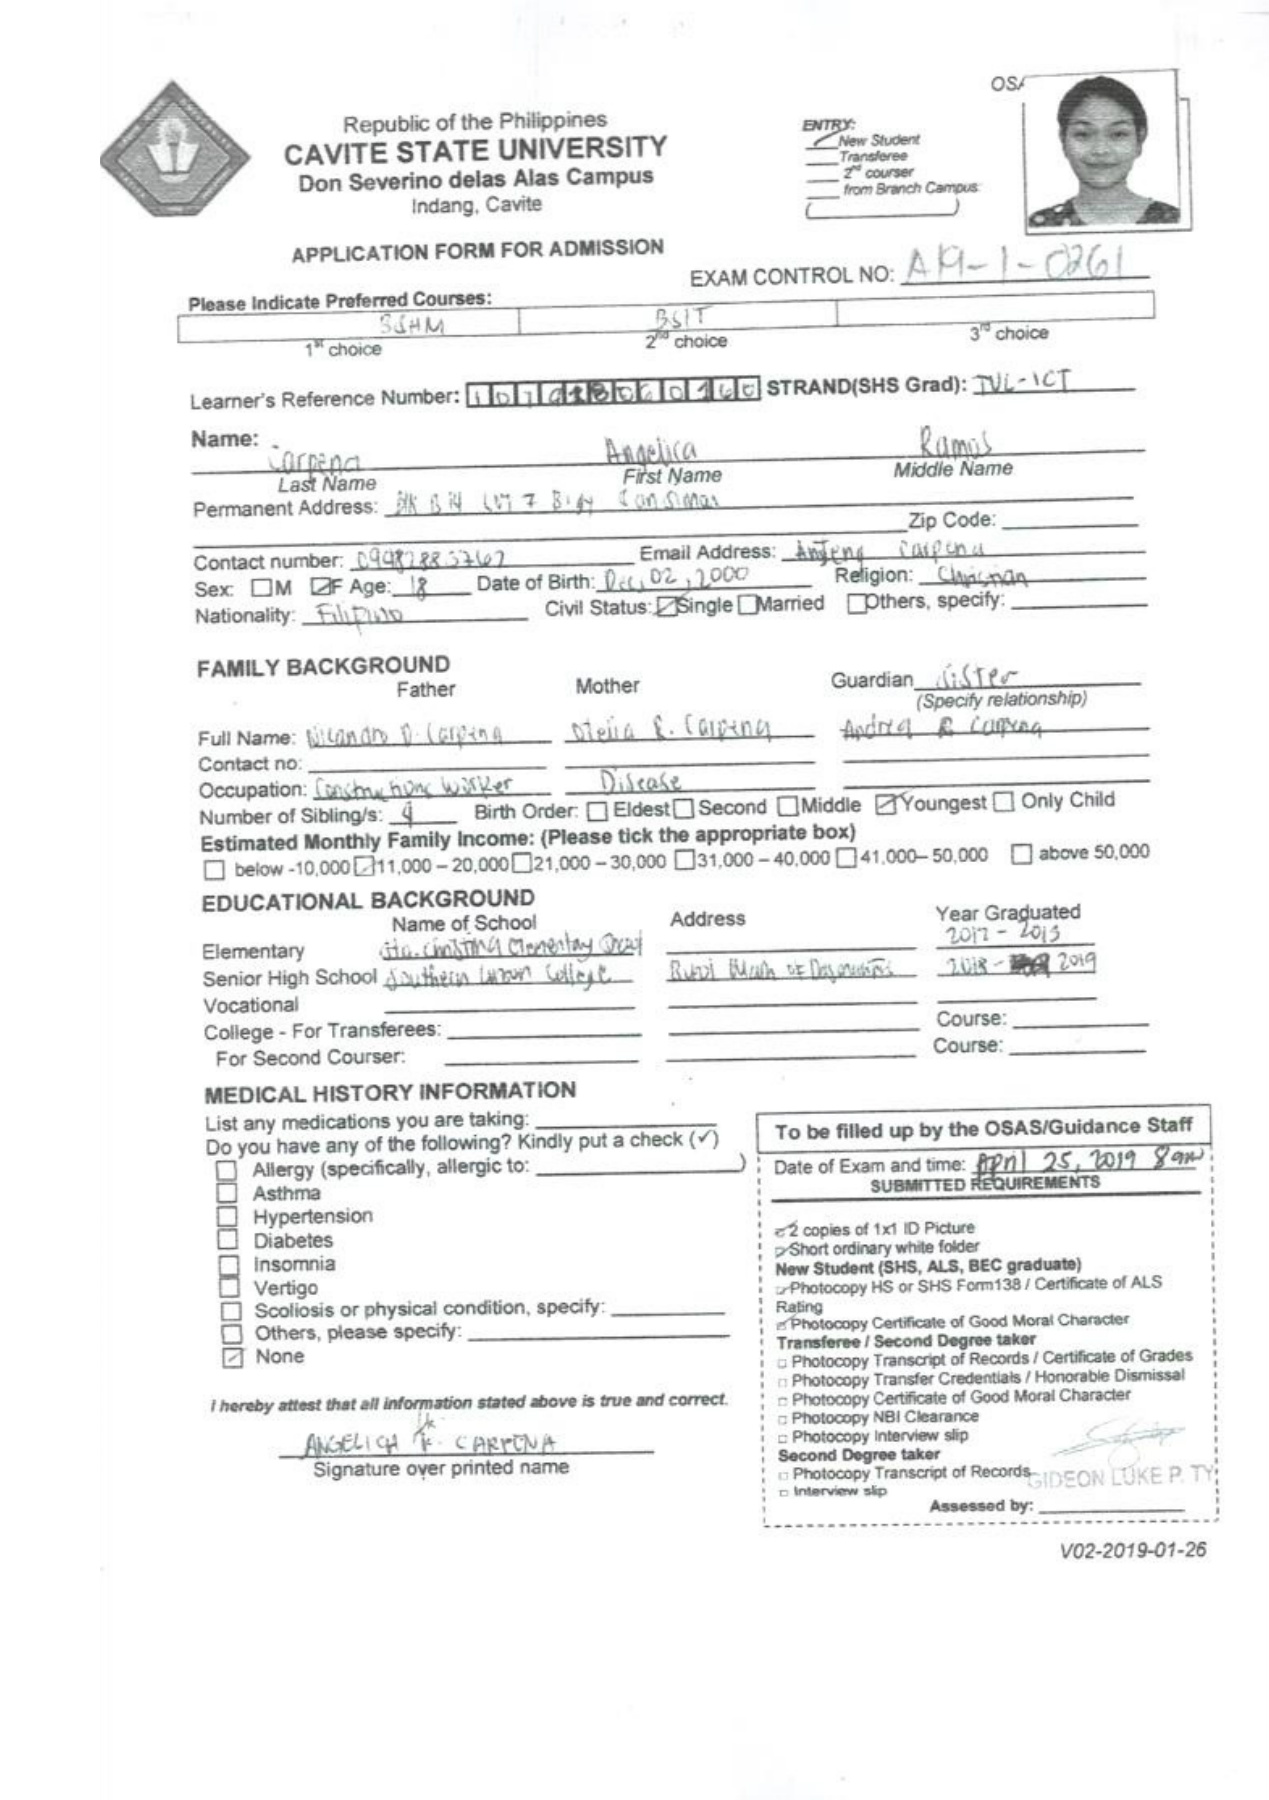 OSA
Republic of the Philippines
CAVITE STATE UNIVERSITY
Don Severino delas Alas Campus
Indang, Cavite
ENTRY:
New Student
Transferee
2nd courser
from Branch Campus:
APPLICATION FORM FOR ADMISSION
EXAM CONTROL NO: A19-1-0261
Please Indicate Preferred Courses:
BSHM BSIT
1st choice 2nd choice 3rd choice
Learner's Reference Number: STRAND(SHS Grad): TVL-ICT
Name:
Carpena Angelica Ramos
Last Name First Name Middle Name
Permanent Address: Blk B14 Lot 7 Brgy
Zip Code:
Contact number: Email Address: Anjeng Carpena
Sex: M F Age: 18 Date of Birth: Dec, 02, 2000 Religion: Christian
Nationality: Filipino Civil Status: Single Married Others, specify:
FAMILY BACKGROUND
Father Mother Guardian Sister
(Specify relationship)
Full Name: Nicandro D. Carpena R. Carpena Andrea R Carpena
Contact no:
Occupation: Constructions Worker Disease
Number of Sibling/s: 4 Birth Order: Eldest Second Middle Youngest Only Child
Estimated Monthly Family Income: (Please tick the appropriate box)
below -10,000 11,000 – 20,000 21,000 – 30,000 31,000 – 40,000 41,000– 50,000 above 50,000
EDUCATIONAL BACKGROUND
Name of School Address Year Graduated
Elementary Sta. Christina Elementary 2012 - 2013
Senior High School Southern Luzon College 2018 - 2019
Vocational
College - For Transferees: Course:
For Second Courser: Course:
MEDICAL HISTORY INFORMATION
List any medications you are taking:
Do you have any of the following? Kindly put a check (✓)
Allergy (specifically, allergic to: )
Asthma
Hypertension
Diabetes
Insomnia
Vertigo
Scoliosis or physical condition, specify:
Others, please specify:
None
I hereby attest that all information stated above is true and correct.
ANGELICA R. CARPENA
Signature over printed name
To be filled up by the OSAS/Guidance Staff
Date of Exam and time: April 25, 2019 8am
SUBMITTED REQUIREMENTS
2 copies of 1x1 ID Picture
Short ordinary white folder
New Student (SHS, ALS, BEC graduate)
Photocopy HS or SHS Form138 / Certificate of ALS
Rating
Photocopy Certificate of Good Moral Character
Transferee / Second Degree taker
Photocopy Transcript of Records / Certificate of Grades
Photocopy Transfer Credentials / Honorable Dismissal
Photocopy Certificate of Good Moral Character
Photocopy NBI Clearance
Photocopy Interview slip
Second Degree taker
Photocopy Transcript of Records
GIDEON LUKE P. TY
Interview slip
Assessed by:
V02-2019-01-26